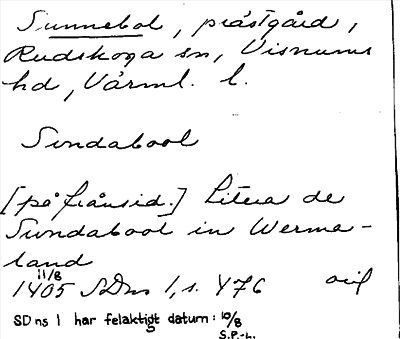 Sunnebol, prästgård,
Rudskoga sn, Visnums
hd, Värml. l.
Sundabool
[på frånsid.] Litera de
Sundabool in Werma-
land
11/8
1405 SDns 1, s. 476 orig
SD ns 1 har felaktigt datum: 10/8
S.P.-L.